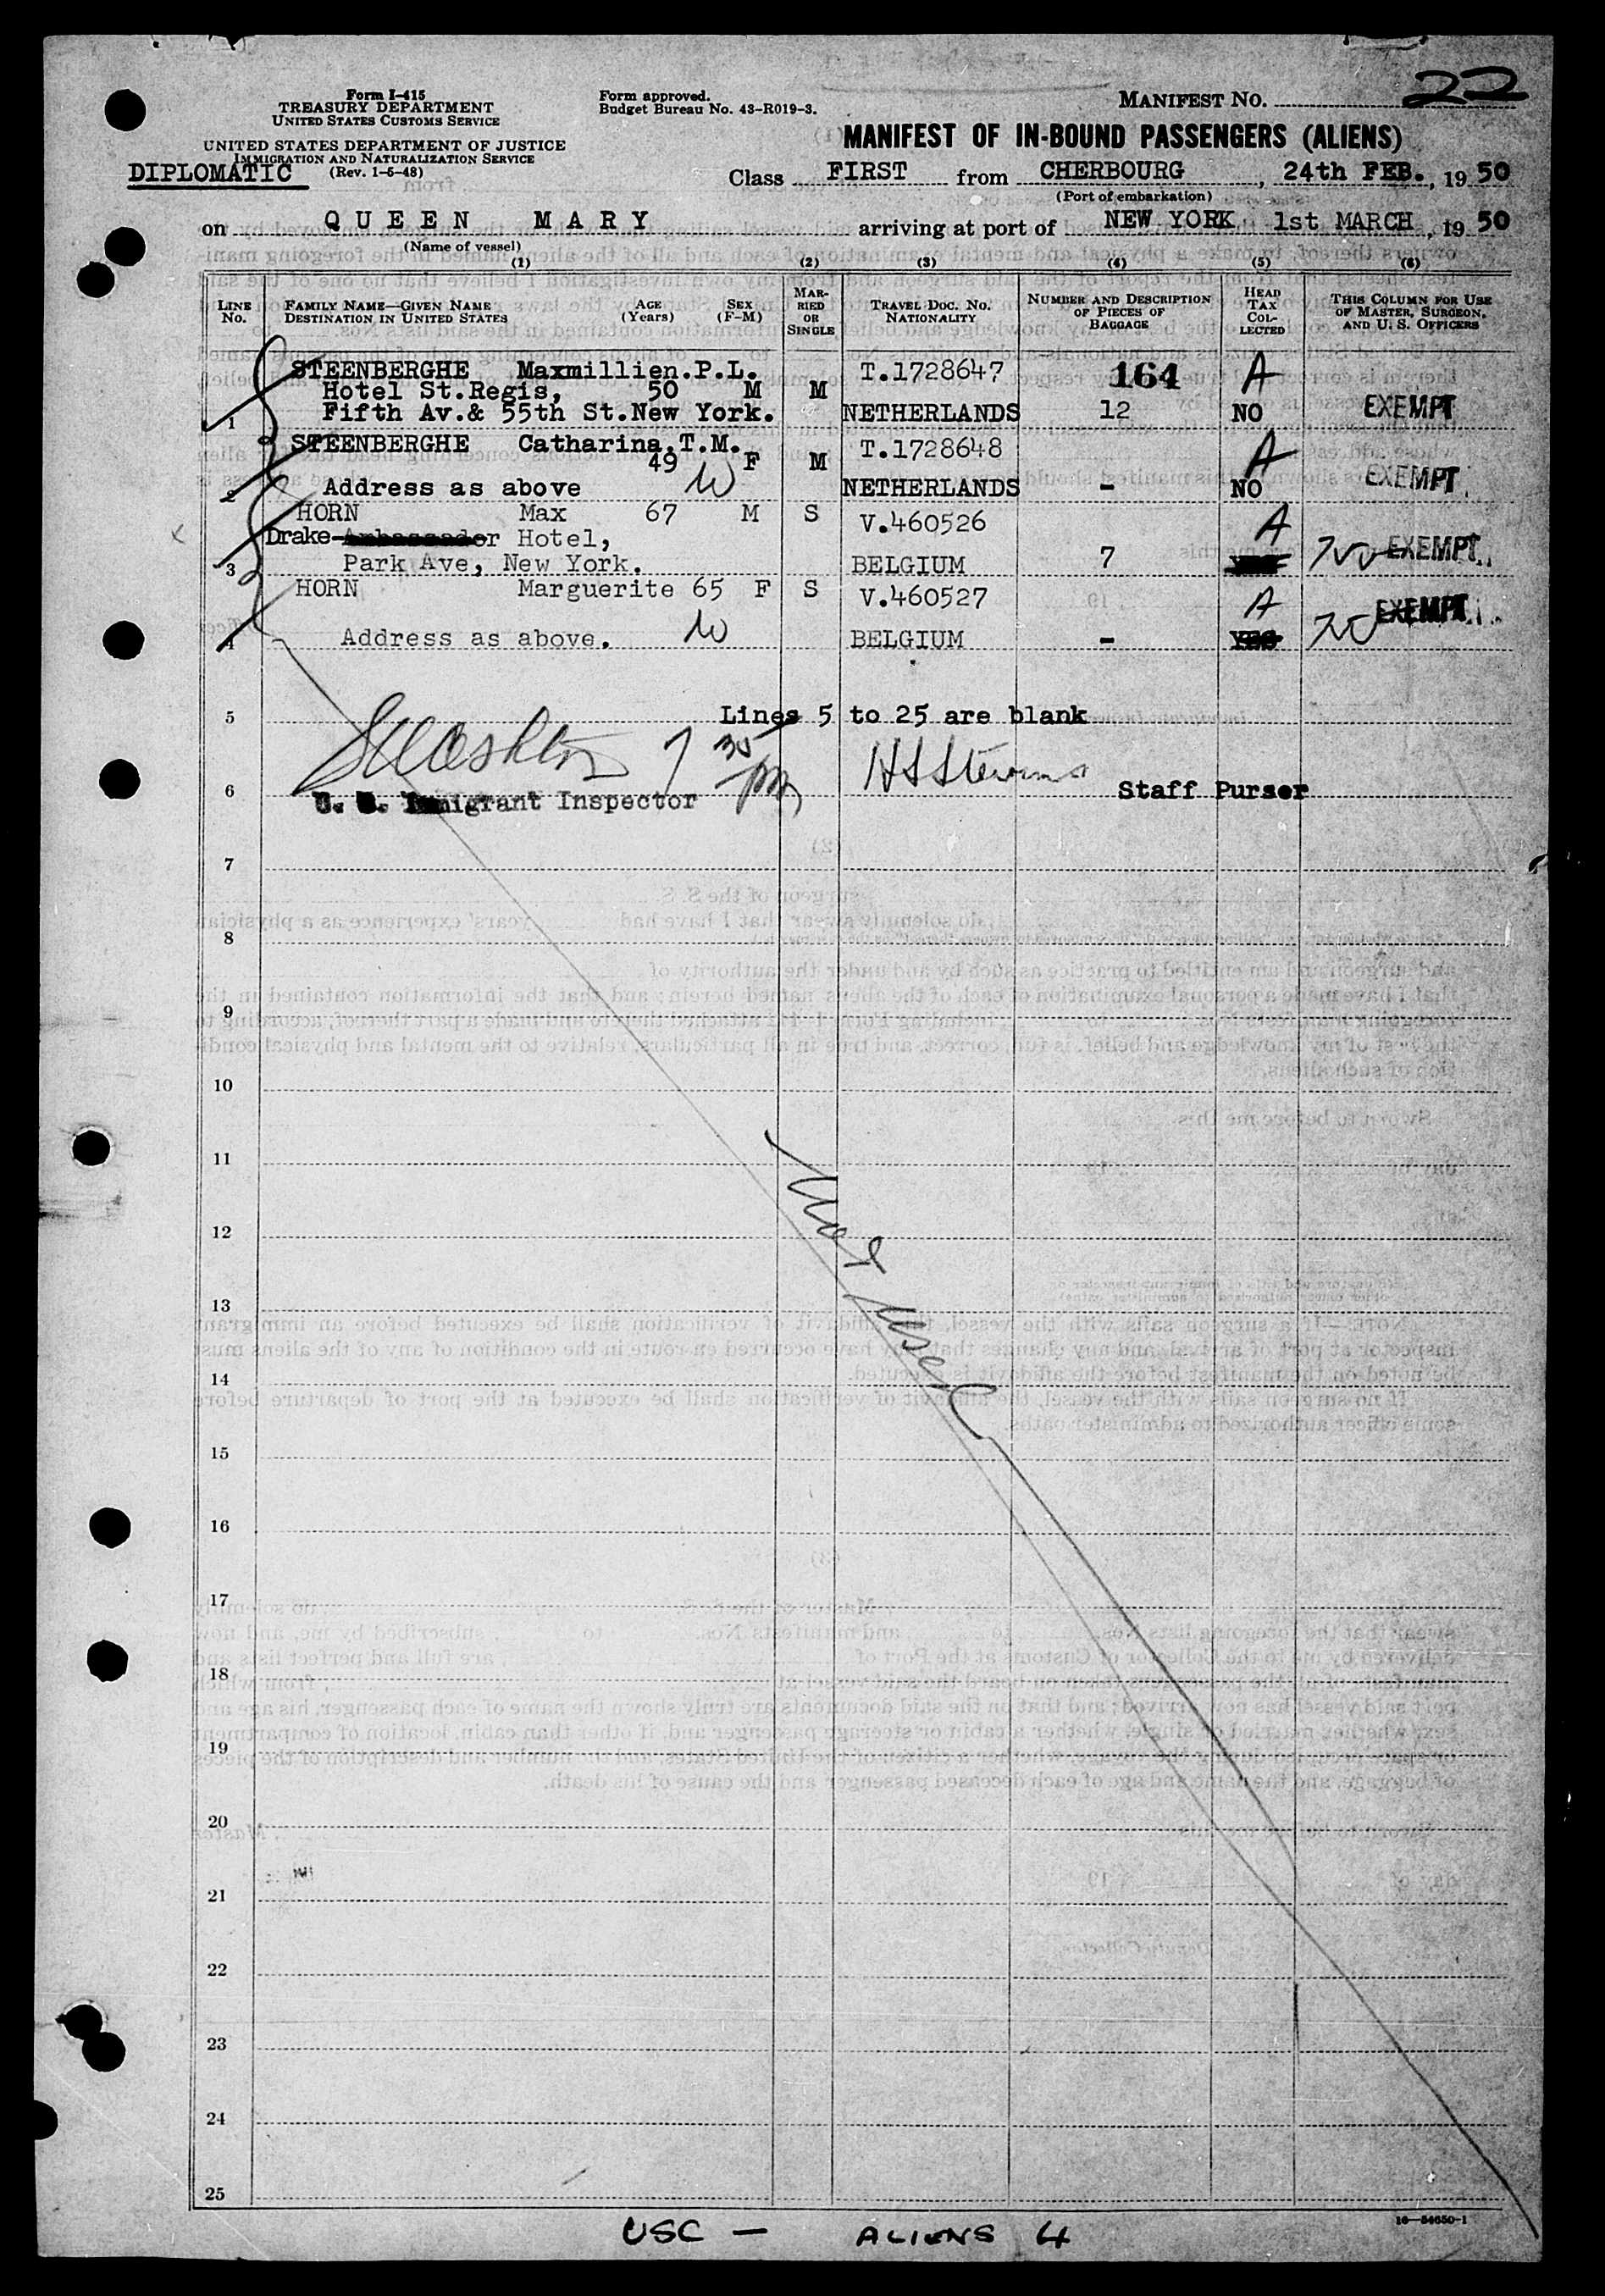 Form I-415
TREASURY DEPARTMENT
UNITED STATES CUSTOMS SERVICE
UNITED STATES DEPARTMENT OF JUSTICE
IMMIGRATION AND NATURALIZATION SERVICE
(Rev. 1-6-48)
DIPLOMATIC
Form approved.
Budget Bureau No. 43-R019-3.
MANIFEST NO. 22
MANIFEST OF IN-BOUND PASSENGERS (ALIENS)
Class FIRST from CHERBOURG, 24th FEB., 19 50
(Port of embarkation)
on QUEEN MARY arriving at port of NEW YORK 1st MARCH, 19 50
(Name of vessel)
(1) (2) (3) (4) (5) (6)
LINE No. FAMILY NAME—GIVEN NAME DESTINATION IN UNITED STATES AGE (Years) SEX (F-M) MARRIED OR SINGLE TRAVEL DOC. NO. NATIONALITY NUMBER AND DESCRIPTION OF PIECES OF BAGGAGE HEAD TAX COLLECTED THIS COLUMN FOR USE OF MASTER, SURGEON, AND U. S. OFFICERS
STEENBERGHE Maxmillien.P.L. T.1728647 164 A
Hotel St.Regis, 50 M M
1 Fifth Av.& 55th St.New York. NETHERLANDS 12 NO EXEMPT
STEENBERGHE Catharina.T.M. T.1728648 A
49 F M
2 Address as above W NETHERLANDS - NO EXEMPT
HORN Max 67 M S V.460526 A
Drake- Hotel,
3 Park Ave, New York. BELGIUM 7 NO EXEMPT
HORN Marguerite 65 F S V.460527 A EXEMPT
4 Address as above. W BELGIUM - YES NO
5 Lines 5 to 25 are blank
7 35 pm
6 U. S. Immigrant Inspector Staff Purser
7
8
9
10
11
12
13
14
15
16
17
18
19
20
21
22
23
24
25
16—54650-1
USC — ALIENS 4